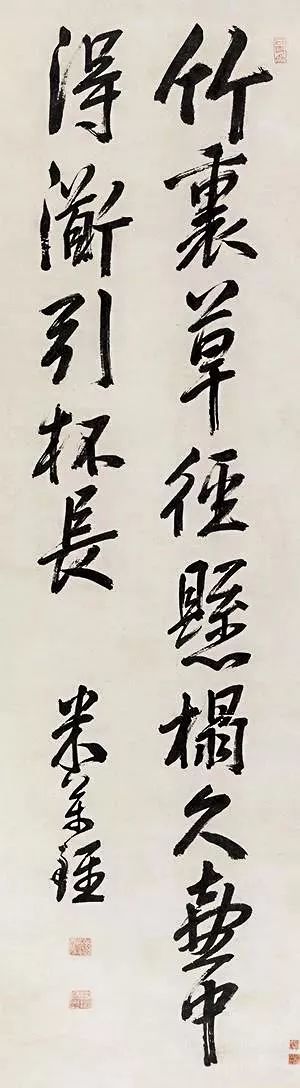 竹裏草徑懸榻久壺中
得漸引杯長
米萬鍾